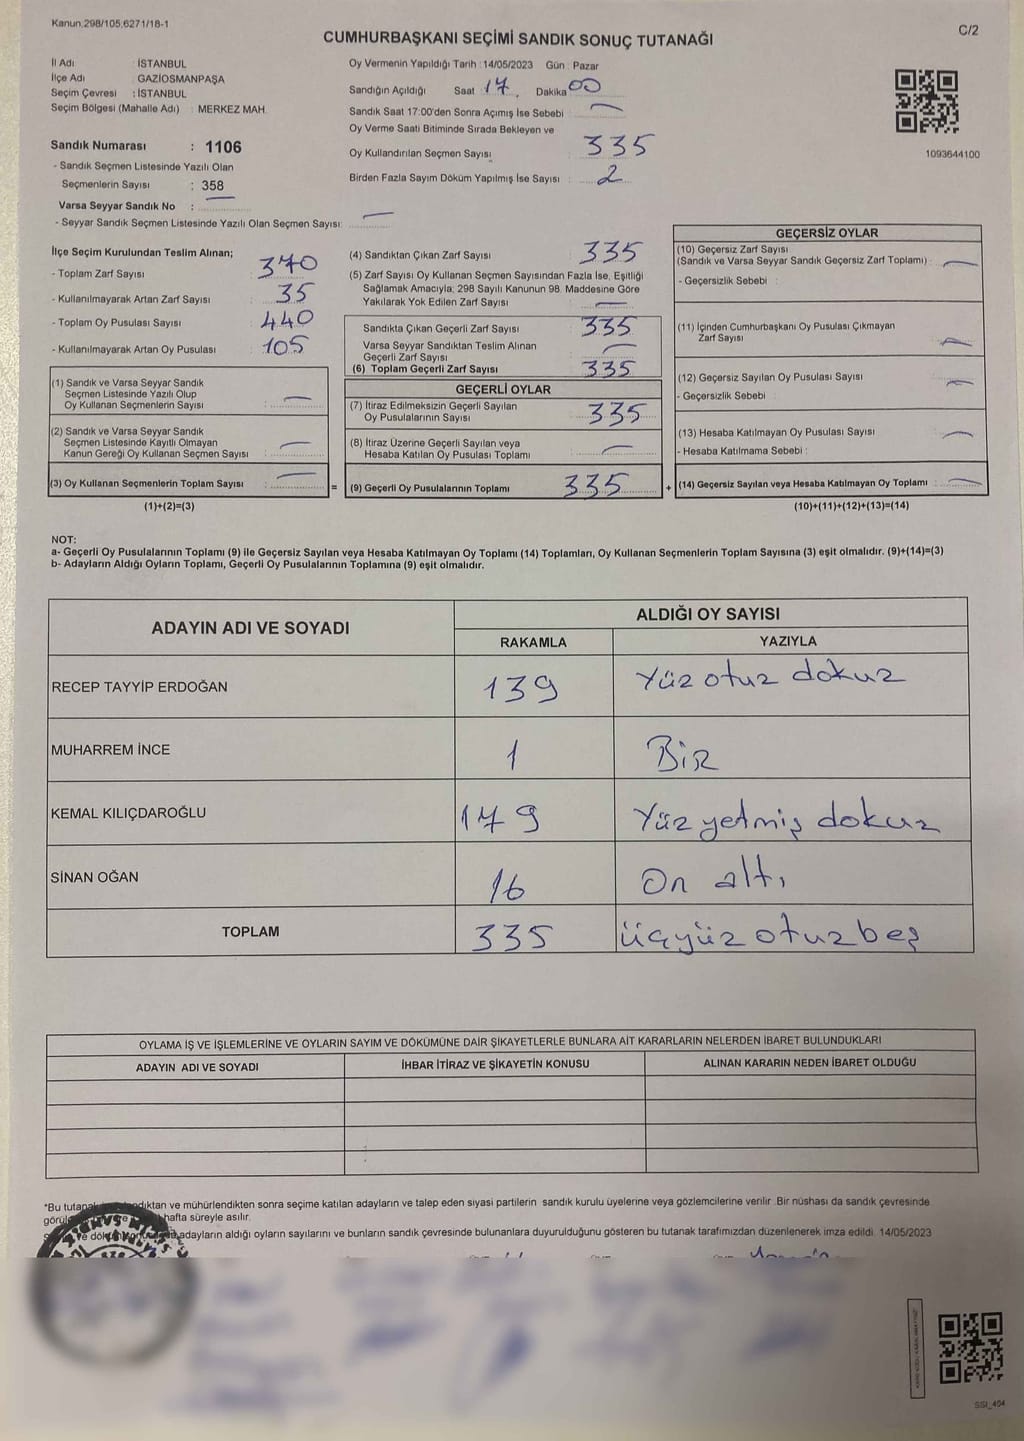 Kanun:298/105,6271/18-1
C/2
CUMHURBAŞKANI SEÇİMİ SANDIK SONUÇ TUTANAĞI
İl Adı : İSTANBUL
İlçe Adı : GAZİOSMANPAŞA
Seçim Çevresi : İSTANBUL
Seçim Bölgesi (Mahalle Adı) : MERKEZ MAH.
Sandık Numarası : 1106
- Sandık Seçmen Listesinde Yazılı Olan
Seçmenlerin Sayısı : 358
Varsa Seyyar Sandık No :
- Seyyar Sandık Seçmen Listesinde Yazılı Olan Seçmen Sayısı:
Oy Vermenin Yapıldığı Tarih : 14/05/2023 Gün : Pazar
Sandığın Açıldığı Saat 17 Dakika 00
Sandık Saat 17:00'den Sonra Açımış İse Sebebi :
Oy Verme Saati Bitiminde Sırada Bekleyen ve
Oy Kullandırılan Seçmen Sayısı : 335
Birden Fazla Sayım Döküm Yapılmış İse Sayısı : 2
1093644100
İlçe Seçim Kurulundan Teslim Alınan;
- Toplam Zarf Sayısı 370
- Kullanılmayarak Artan Zarf Sayısı 35
- Toplam Oy Pusulası Sayısı 440
- Kullanılmayarak Artan Oy Pusulası 105
(1) Sandık ve Varsa Seyyar Sandık
Seçmen Listesinde Yazılı Olup
Oy Kullanan Seçmenlerin Sayısı :
(2) Sandık ve Varsa Seyyar Sandık
Seçmen Listesinde Kayıtlı Olmayan
Kanun Gereği Oy Kullanan Seçmen Sayısı :
(3) Oy Kullanan Seçmenlerin Toplam Sayısı : =
(1)+(2)=(3)
(4) Sandıktan Çıkan Zarf Sayısı : 335
(5) Zarf Sayısı Oy Kullanan Seçmen Sayısından Fazla İse, Eşitliği
Sağlamak Amacıyla; 298 Sayılı Kanunun 98. Maddesine Göre
Yakılarak Yok Edilen Zarf Sayısı :
Sandıkta Çıkan Geçerli Zarf Sayısı : 335
Varsa Seyyar Sandıktan Teslim Alınan
Geçerli Zarf Sayısı
(6) Toplam Geçerli Zarf Sayısı : 335
GEÇERLİ OYLAR
(7) İtiraz Edilmeksizin Geçerli Sayılan
Oy Pusulalarının Sayısı : 335
(8) İtiraz Üzerine Geçerli Sayılan veya
Hesaba Katılan Oy Pusulası Toplamı :
(9) Geçerli Oy Pusulalarının Toplamı 335 +
GEÇERSİZ OYLAR
(10) Geçersiz Zarf Sayısı
(Sandık ve Varsa Seyyar Sandık Geçersiz Zarf Toplamı) :
- Geçersizlik Sebebi :
(11) İçinden Cumhurbaşkanı Oy Pusulası Çıkmayan
Zarf Sayısı
(12) Geçersiz Sayılan Oy Pusulası Sayısı :
- Geçersizlik Sebebi :
(13) Hesaba Katılmayan Oy Pusulası Sayısı :
- Hesaba Katılmama Sebebi :
(14) Geçersiz Sayılan veya Hesaba Katılmayan Oy Toplamı :
(10)+(11)+(12)+(13)=(14)
NOT:
a- Geçerli Oy Pusulalarının Toplamı (9) ile Geçersiz Sayılan veya Hesaba Katılmayan Oy Toplamı (14) Toplamları, Oy Kullanan Seçmenlerin Toplam Sayısına (3) eşit olmalıdır. (9)+(14)=(3)
b- Adayların Aldığı Oyların Toplamı, Geçerli Oy Pusulalarının Toplamına (9) eşit olmalıdır.
ADAYIN ADI VE SOYADI
ALDIĞI OY SAYISI
RAKAMLA YAZIYLA
RECEP TAYYİP ERDOĞAN 139 Yüz otuz dokuz
MUHARREM İNCE 1 BİR
KEMAL KILIÇDAROĞLU 179 Yüz yetmiş dokuz
SİNAN OĞAN 16 On altı
TOPLAM 335 üçyüz otuz beş
OYLAMA İŞ VE İŞLEMLERİNE VE OYLARIN SAYIM VE DÖKÜMÜNE DAİR ŞİKAYETLERLE BUNLARA AİT KARARLARIN NELERDEN İBARET BULUNDUKLARI
ADAYIN ADI VE SOYADI İHBAR İTİRAZ VE ŞİKAYETİN KONUSU ALINAN KARARIN NEDEN İBARET OLDUĞU
*Bu tutanak ve mühürlendikten sonra seçime katılan adayların ve talep eden siyasi partilerin sandık kurulu üyelerine veya gözlemcilerine verilir. Bir nüshası da sandık çevresinde
hafta süreyle asılır.
adayların aldığı oyların sayılarını ve bunların sandık çevresinde bulunanlara duyurulduğunu gösteren bu tutanak tarafımızdan düzenlenerek imza edildi. 14/05/2023
SSI_404